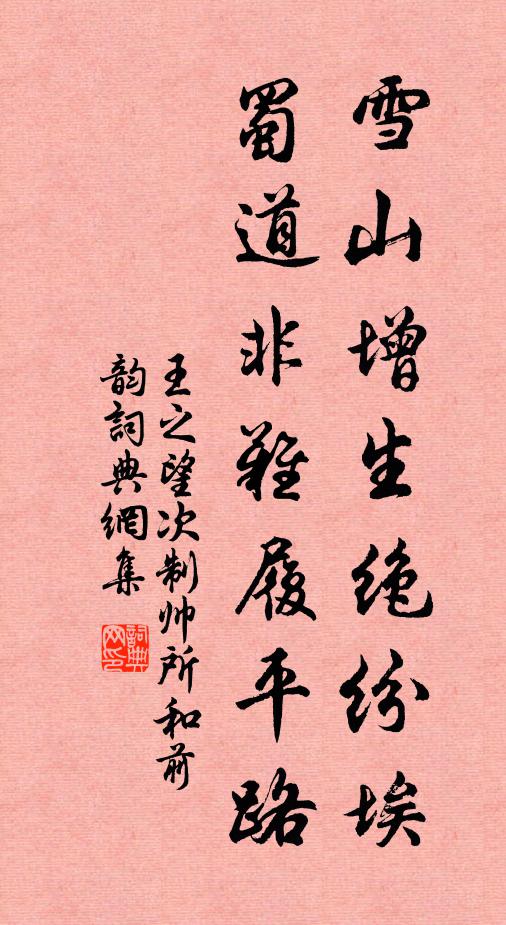 雪山增生绝纷埃
蜀道非难履平路
王之望次制帅所和前
韵詞典網集
詞典网印